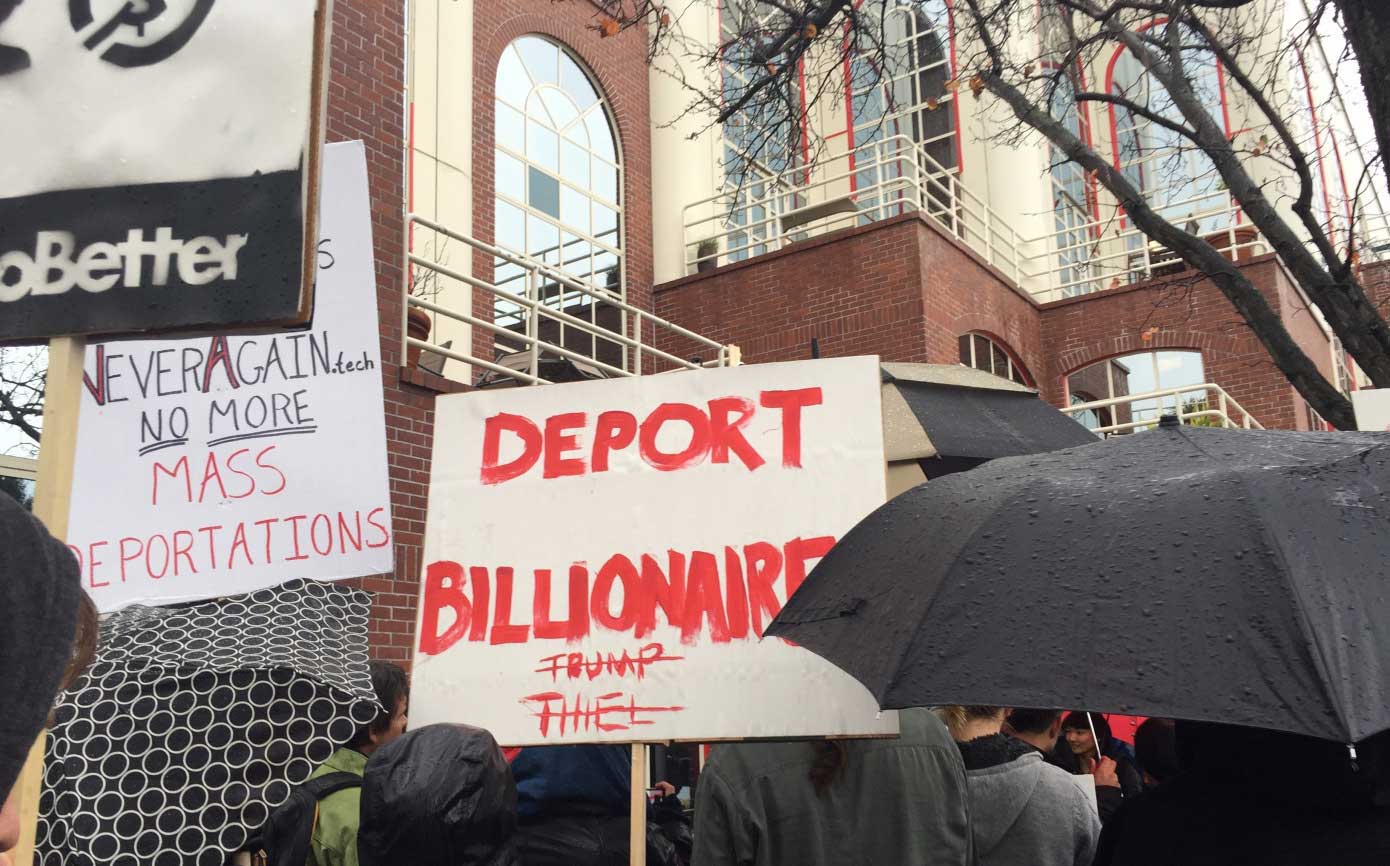 oBetter
s
NEVERAGAIN.tech
NO MORE
MASS
DEPORTATIONS
DEPORT
BILLIONAIRE
TRUMP
THIEL